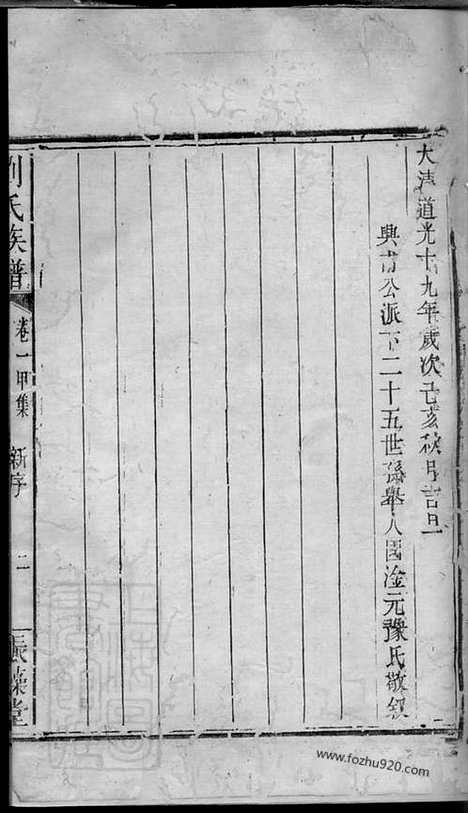 大清道光十九年歲次己亥秋月吉旦
興甫公派下二十五世孫舉人國淦元豫氏敬叙
劉氏族譜
卷一甲集
新序
二
振藻堂
www.fozhu920.com